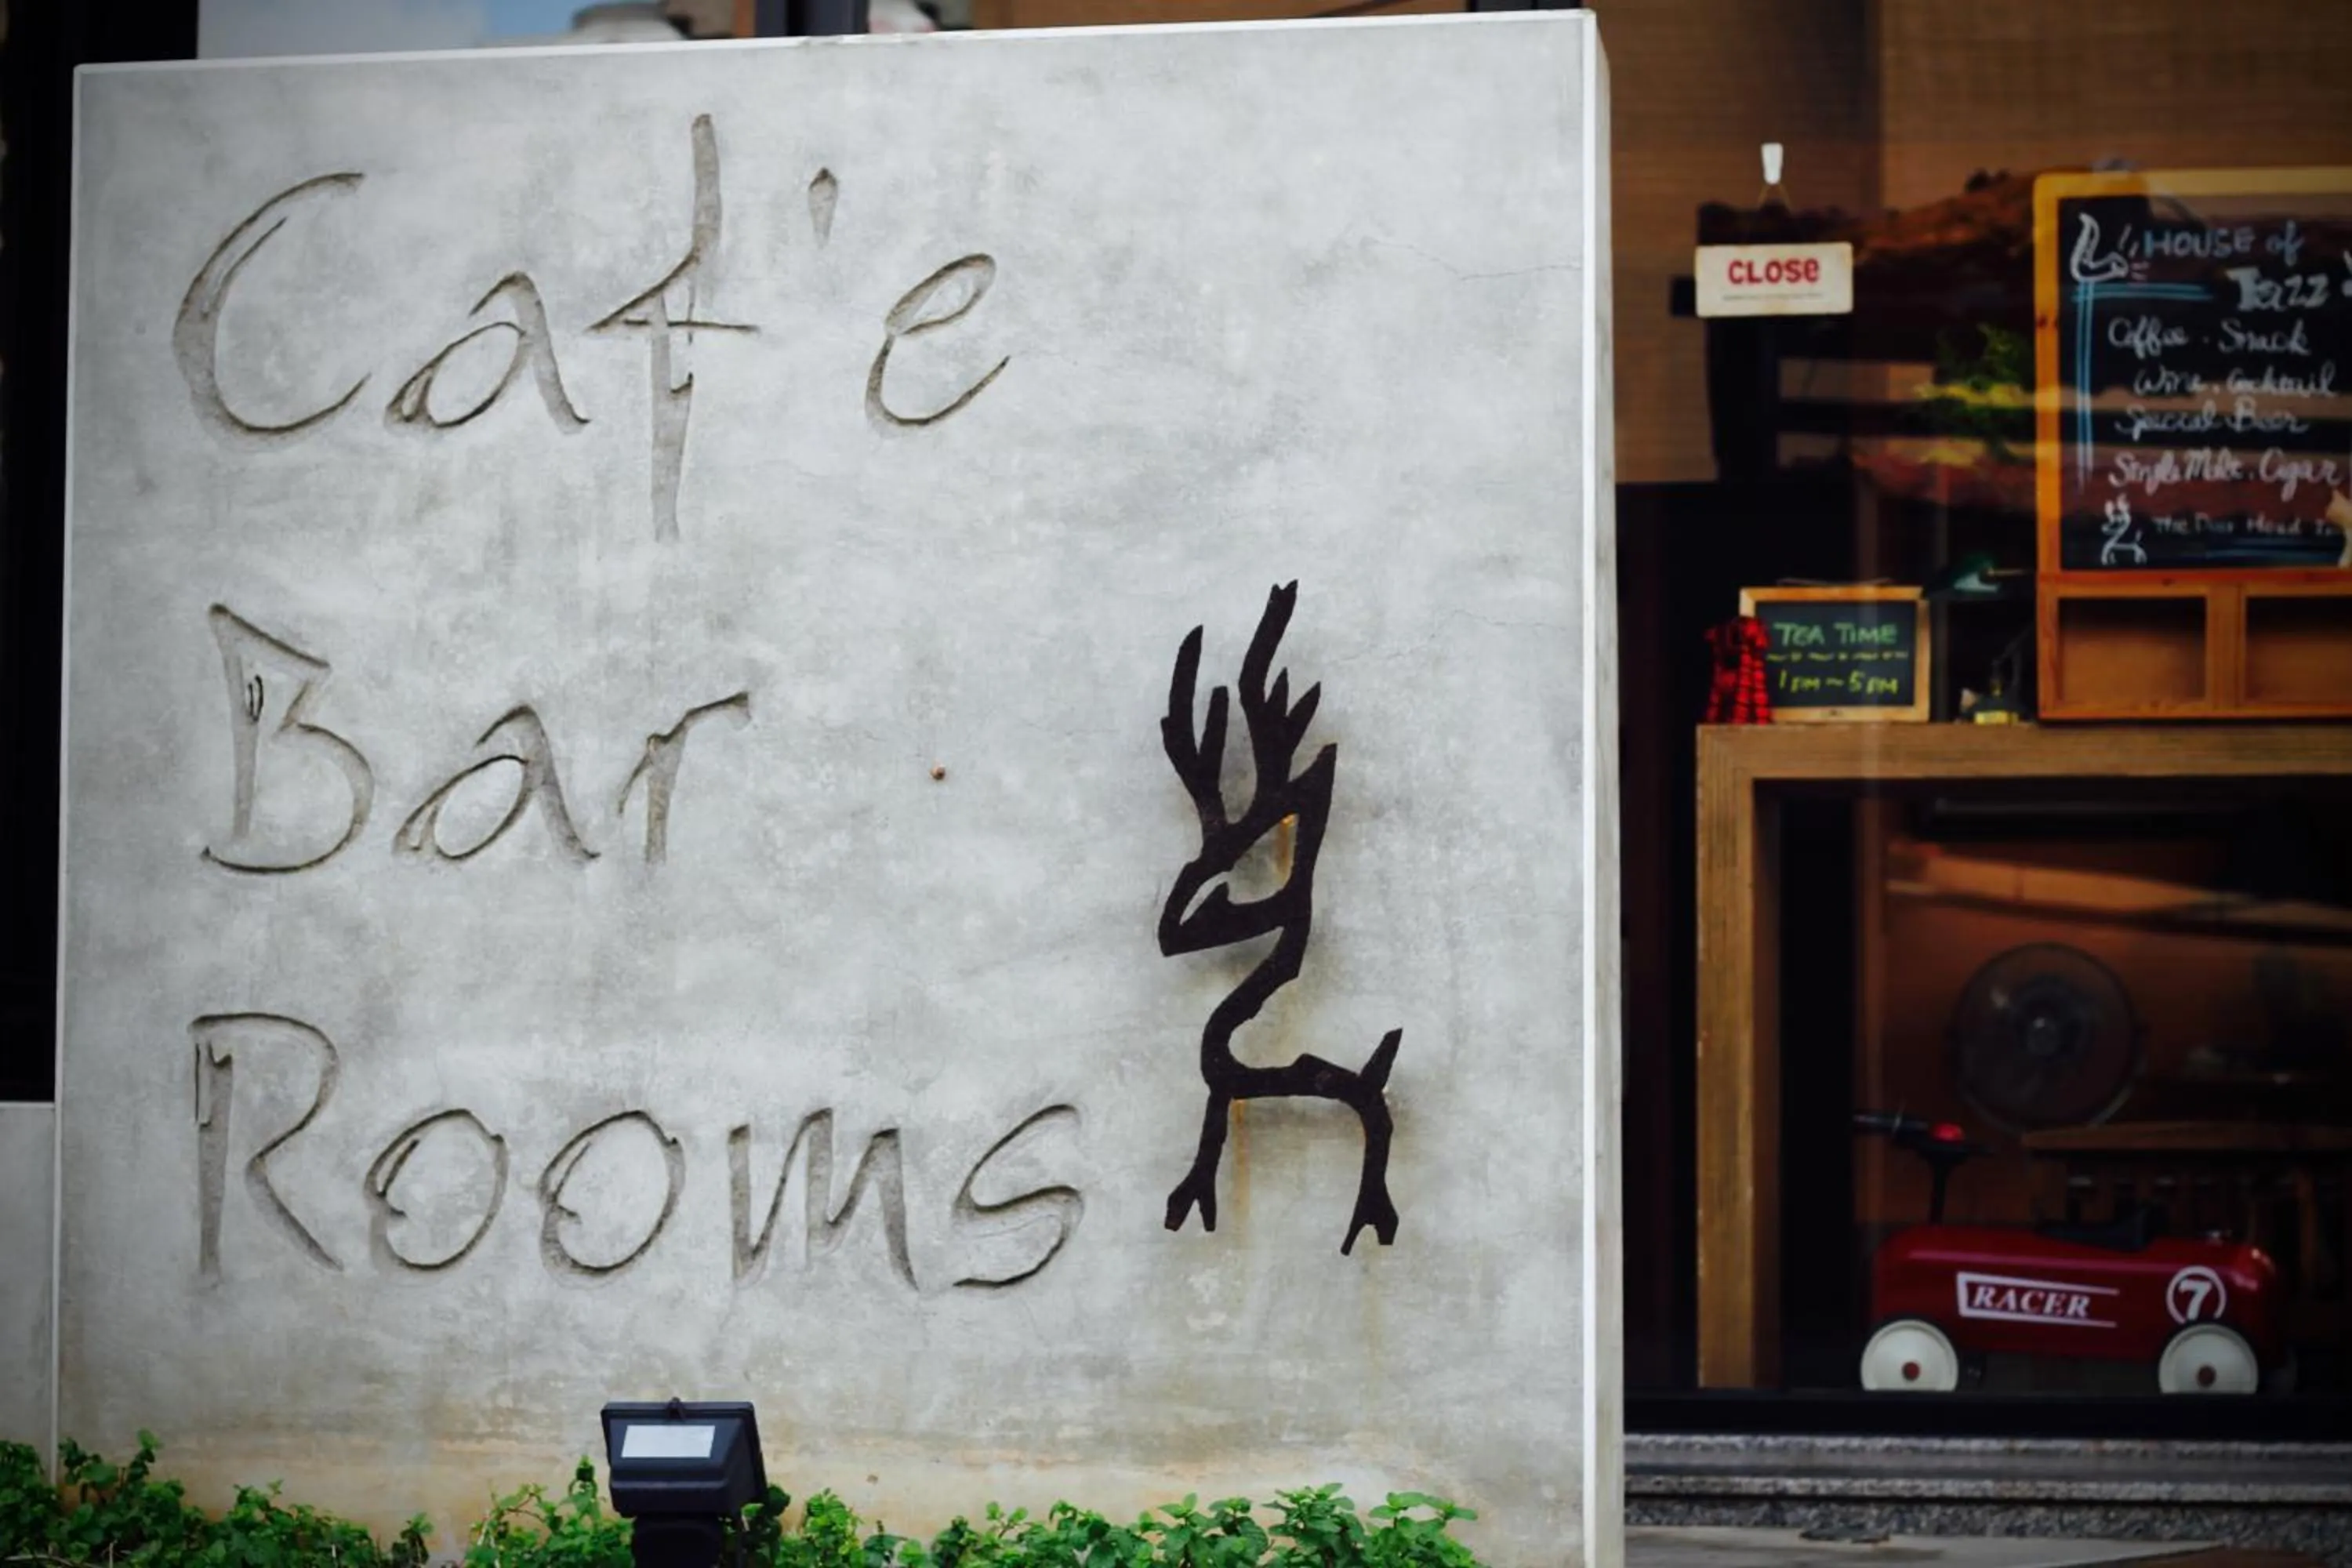 Caf'e
Bar
Rooms
CLOSE
HOUSE of
Jazz
Coffee . Snack
Wine . Cocktail
Special Beer
Single Malt . Cigar
TEA TIME
1 PM ~ 5 PM
RACER
7